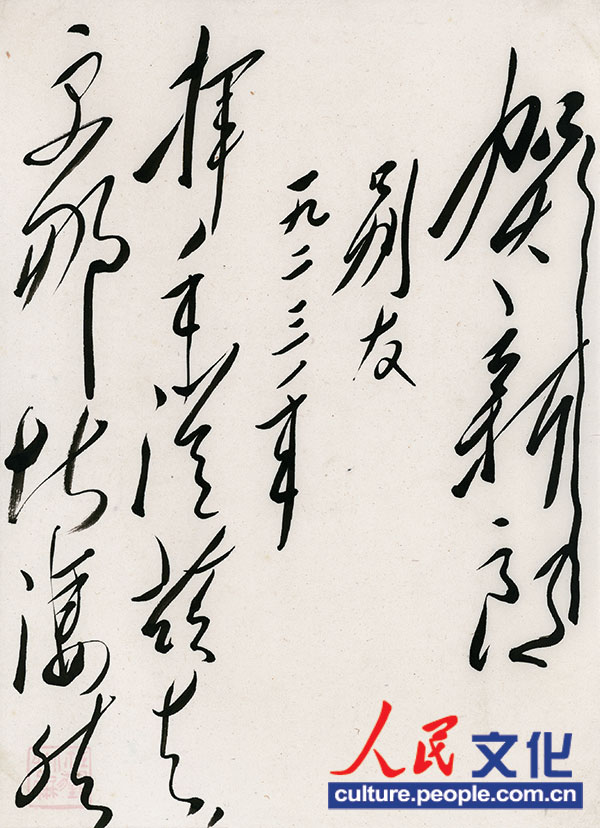 賀新郎
别友
一九二三年
揮手從兹去
更那堪淒然
人民文化
culture.people.com.cn